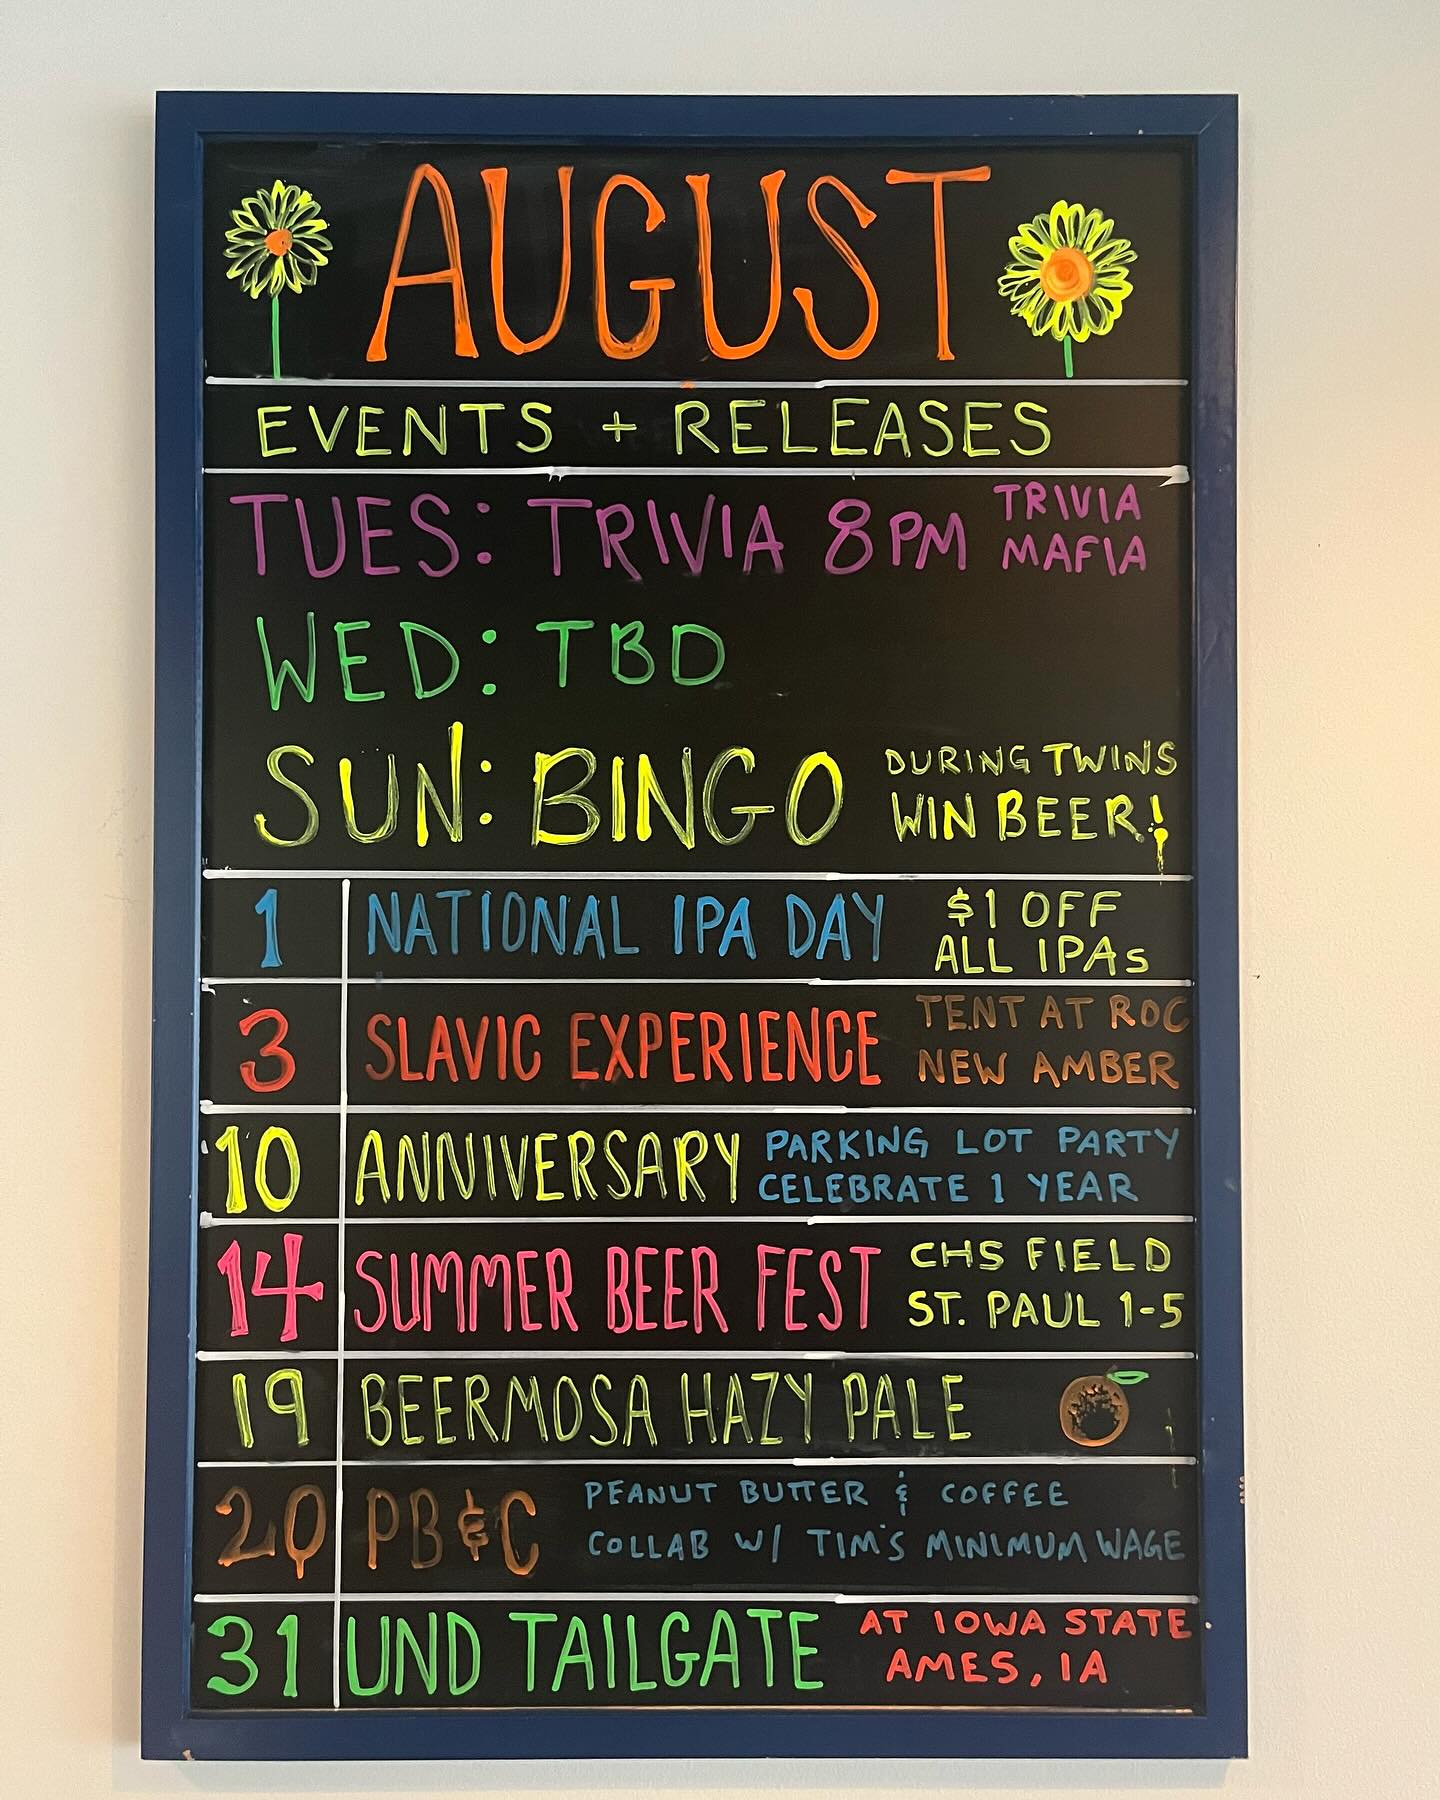 AUGUST
EVENTS + RELEASES
TUES: TRIVIA 8PM TRIVIA MAFIA
WED: TBD
SUN: BINGO DURING TWINS WIN BEER!
1 NATIONAL IPA DAY $1 OFF ALL IPAs
3 SLAVIC EXPERIENCE TENT AT ROC NEW AMBER
10 ANNIVERSARY PARKING LOT PARTY CELEBRATE 1 YEAR
14 SUMMER BEER FEST CHS FIELD ST. PAUL 1-5
19 BEERMOSA HAZY PALE
20 PB&C PEANUT BUTTER & COFFEE COLLAB W/ TIM'S MINIMUM WAGE
31 UND TAILGATE AT IOWA STATE AMES, IA